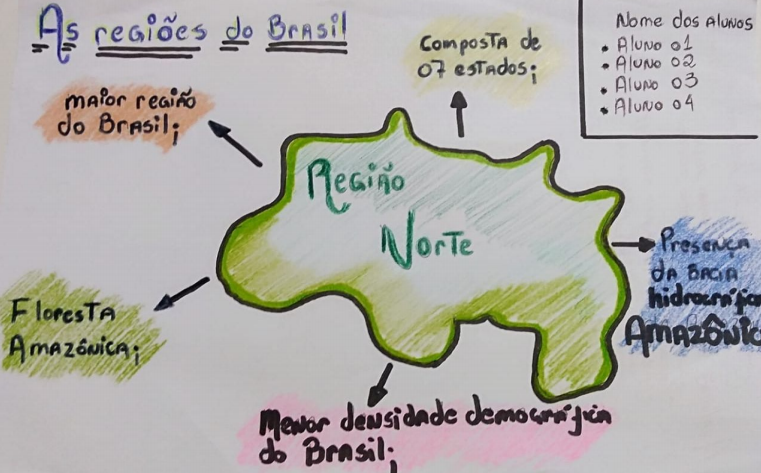 As regiões do Brasil
Nome dos Alunos
• Aluno 01
• Aluno 02
• Aluno 03
• Aluno 04
Composta de
07 estados;
maior região
do Brasil;
Região
Norte
Presença
da Bacia
hidrográfica
Amazônic
Floresta
Amazônica;
Menor densidade demográfica
do Brasil;